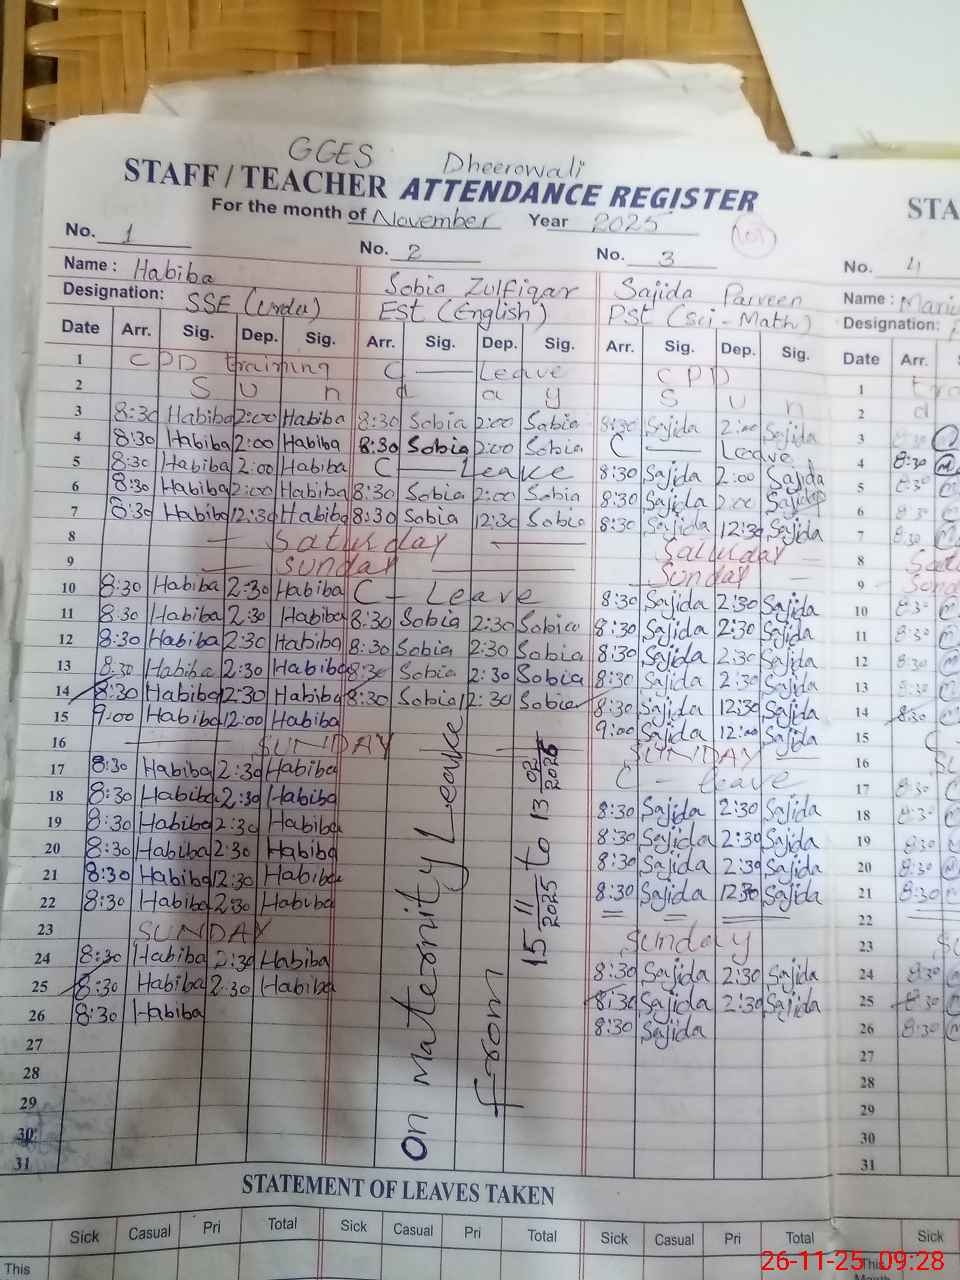 GGES Dheerowali
STAFF / TEACHER ATTENDANCE REGISTER STA
For the month of November Year 2025
No. 1 No. 2 No. 3 No. 4
Name : Habiba Sobia Zulfiqar Sajida Parveen Name : Maria
Designation: SSE (Urdu) EST (English) PST (Sci - Math) Designation:
Date Arr. Sig. Dep. Sig. Arr. Sig. Dep. Sig. Arr. Sig. Dep. Sig. Date Arr.
1 CPD training C — Leave CPD 1
2 S u n d a y S U n 2 d
3 8:30 Habiba 2:00 Habiba 8:30 Sobia 2:00 Sobia 8:30 Sajida 2:00 Sajida 3 8:30
4 8:30 Habiba 2:00 Habiba 8:30 Sobia 2:00 Sobia C — Leave 4 8:30
5 8:30 Habiba 2:00 Habiba C — Leave 8:30 Sajida 2:00 Sajida 5 8:30
6 8:30 Habiba 2:00 Habiba 8:30 Sobia 2:00 Sobia 8:30 Sajida 2:00 Sajida 6 8:30
7 8:30 Habiba 12:30 Habiba 8:30 Sobia 12:30 Sobia 8:30 Sajida 12:30 Sajida 7 8:30
8 — Saturday — Saturday — 8
9 — Sunday — Sunday — 9
10 8:30 Habiba 2:30 Habiba C - Leave 8:30 Sajida 2:30 Sajida 10 8:30
11 8:30 Habiba 2:30 Habiba 8:30 Sobia 2:30 Sobia 8:30 Sajida 2:30 Sajida 11 8:30
12 8:30 Habiba 2:30 Habiba 8:30 Sobia 2:30 Sobia 8:30 Sajida 2:30 Sajida 12 8:30
13 8:30 Habiba 2:30 Habiba 8:30 Sobia 2:30 Sobia 8:30 Sajida 2:30 Sajida 13 8:30
14 8:30 Habiba 12:30 Habiba 8:30 Sobia 12:30 Sobia 8:30 Sajida 12:30 Sajida 14 8:30
15 9:00 Habiba 12:00 Habiba 9:00 Sajida 12:00 Sajida 15 C
16 — SUNDAY — SUNDAY — 16
17 8:30 Habiba 2:30 Habiba C - leave 17 8:30
18 8:30 Habiba 2:30 Habiba 8:30 Sajida 2:30 Sajida 18 8:30
19 8:30 Habiba 2:30 Habiba 8:30 Sajida 2:30 Sajida 19 8:30
20 8:30 Habiba 2:30 Habiba 8:30 Sajida 2:30 Sajida 20 8:30
21 8:30 Habiba 12:30 Habiba 8:30 Sajida 12:30 Sajida 21 8:30
22 8:30 Habiba 2:30 Habiba 22
23 SUNDAY Sunday 23
24 8:30 Habiba 2:30 Habiba 8:30 Sajida 2:30 Sajida 24 8:30
25 8:30 Habiba 2:30 Habiba 8:30 Sajida 2:30 Sajida 25 8:30
26 8:30 Habiba 8:30 Sajida 26 8:30
27 27
28 28
29 29
30 30
31 31
On Maternity Leave
from 15 11 2025 to 13 02 2026
STATEMENT OF LEAVES TAKEN
Sick Casual Pri Total Sick Casual Pri Total Sick Casual Pri Total Sick
This This
Month
26-11-25 09:28